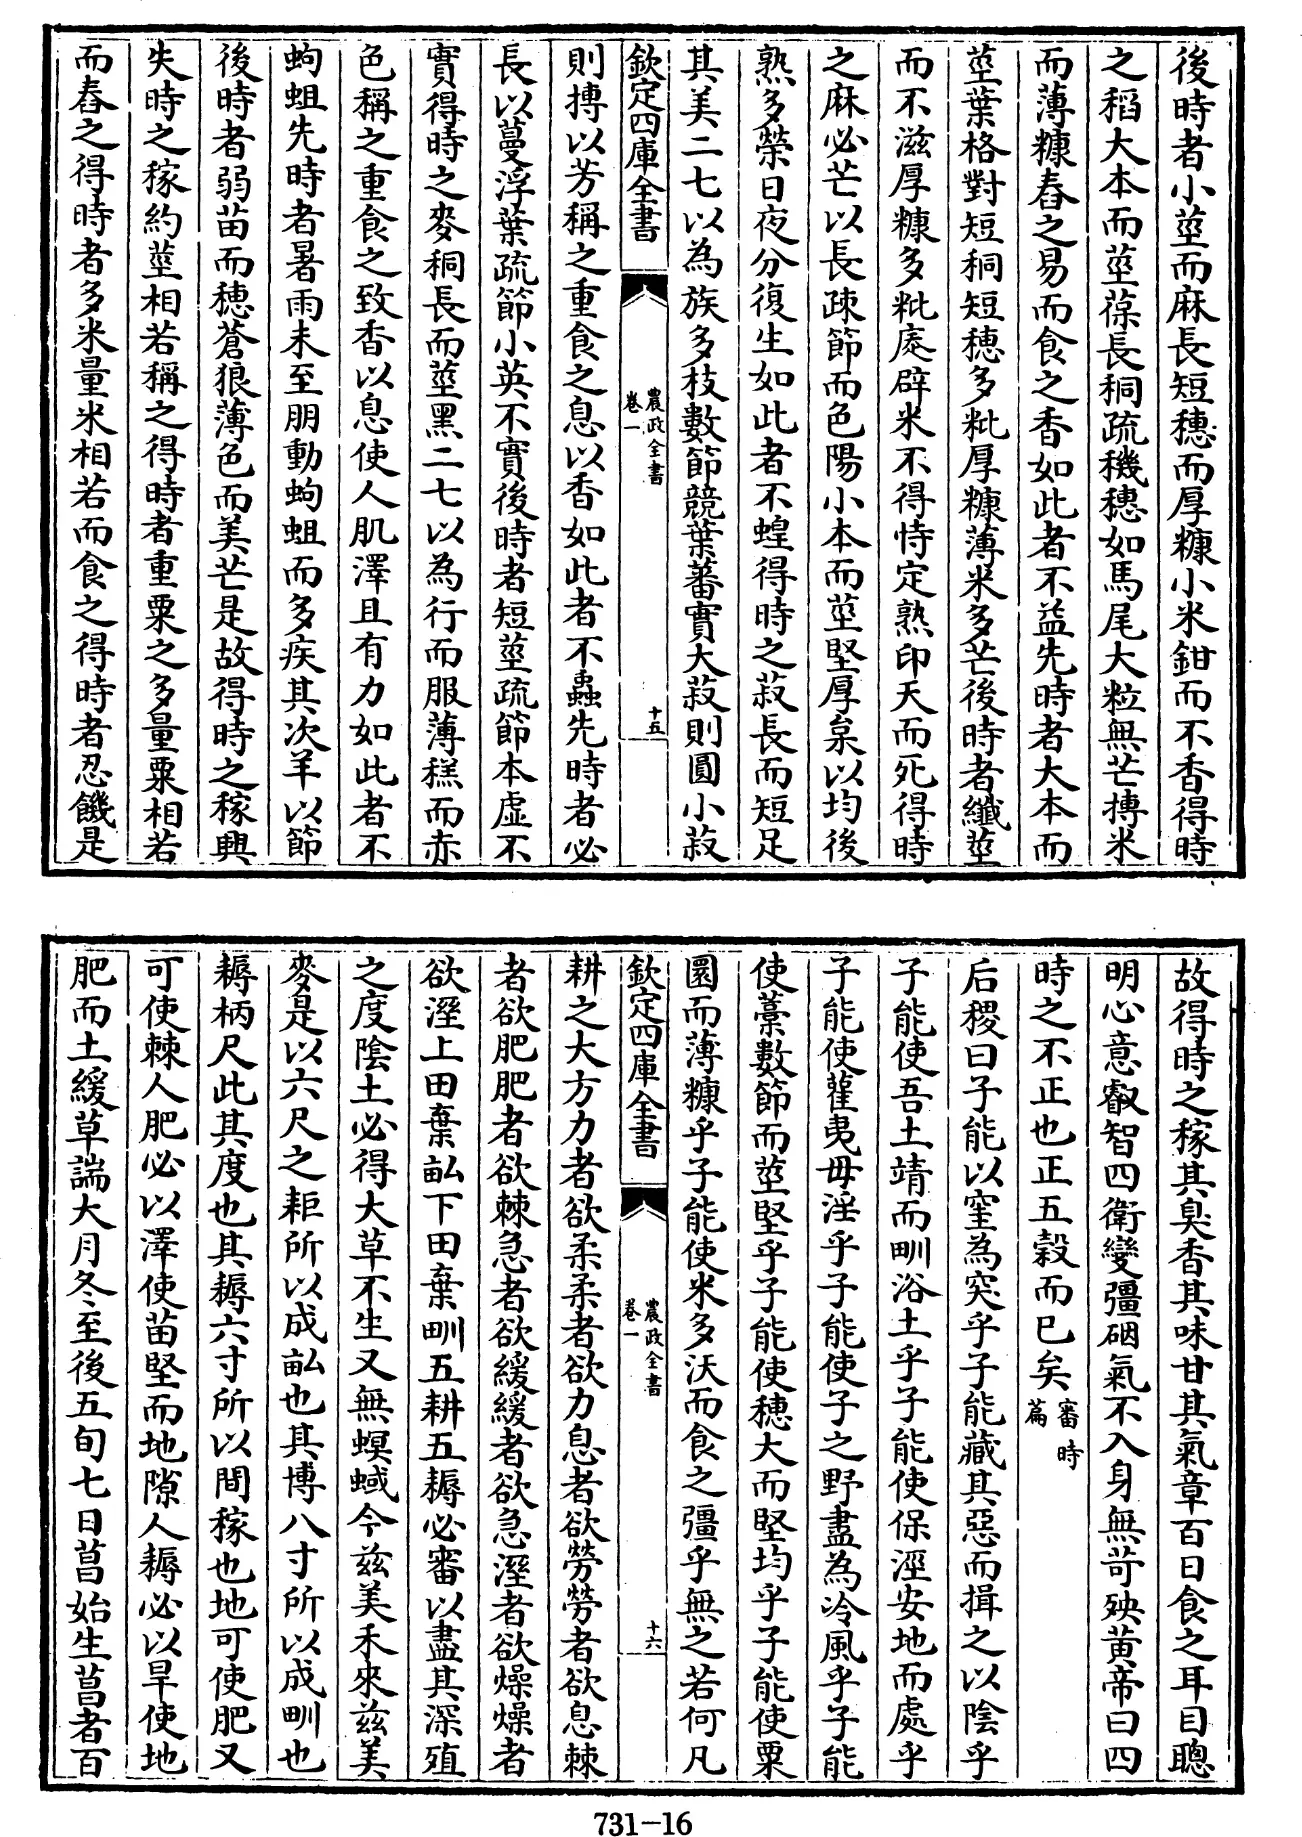 後時者小莖而麻長短穗而厚糠小米鉗而不香得時
之稻大本而莖葆長秱疏穖穗如馬尾大粒無芒摶米
而薄糠舂之易而食之香如此者不益先時者大本而
莖葉格對短秱短穗多粃厚糠薄米多芒後時者纖莖
而不滋厚糠多粃庢辟米不得恃定熟卬天而死得時
之麻必芒以長疎節而色陽小本而莖堅厚枲以均後
熟多榮日夜分復生如此者不蝗得時之菽長而短足
其美二七以為族多枝數節競葉蕃實大菽則圓小菽
欽定四庫全書
農政全書
卷一
十五
則摶以芳稱之重食之息以香如此者不蟲先時者必
長以蔓浮葉疏節小英不實後時者短莖疏節本虛不
實得時之麥秱長而莖黑二七以為行而服薄糕而赤
色稱之重食之致香以息使人肌澤且有力如此者不
蚼蛆先時者暑雨未至胕動蚼蛆而多疾其次羊以節
後時者弱苗而穗蒼狼薄色而美芒是故得時之稼興
失時之稼約莖相若稱之得時者重粟之多量粟相若
而舂之得時者多米量米相若而食之得時者忍饑是
故得時之稼其臭香其味甘其氣章百日食之耳目聰
明心意叡智四衛變彊㐫氣不入身無苛殃黄帝曰四
時之不正也正五穀而已矣審時
篇
后稷曰子能以窐為突乎子能藏其惡而揖之以陰乎
子能使吾土靖而甽浴土乎子能使保溼安地而處乎
子能使雚夷毋淫乎子能使子之野盡為泠風乎子能
使藁數節而莖堅乎子能使穗大而堅均乎子能使粟
圜而薄糠乎子能使米多沃而食之彊乎無之若何凡
欽定四庫全書
農政全書
卷一
十六
耕之大方力者欲柔柔者欲力息者欲勞勞者欲息棘
者欲肥肥者欲棘急者欲緩緩者欲急溼者欲燥燥者
欲溼上田棄畝下田棄甽五耕五耨必審以盡其深殖
之度陰土必得大草不生又無螟蜮今兹美禾來兹美
麥是以六尺之耟所以成畝也其博八寸所以成甽也
耨柄尺此其度也其耨六寸所以間稼也地可使肥又
可使棘人肥必以澤使苗堅而地隙人耨必以旱使地
肥而土緩草諯大月冬至後五旬七日菖始生菖者百
731-16